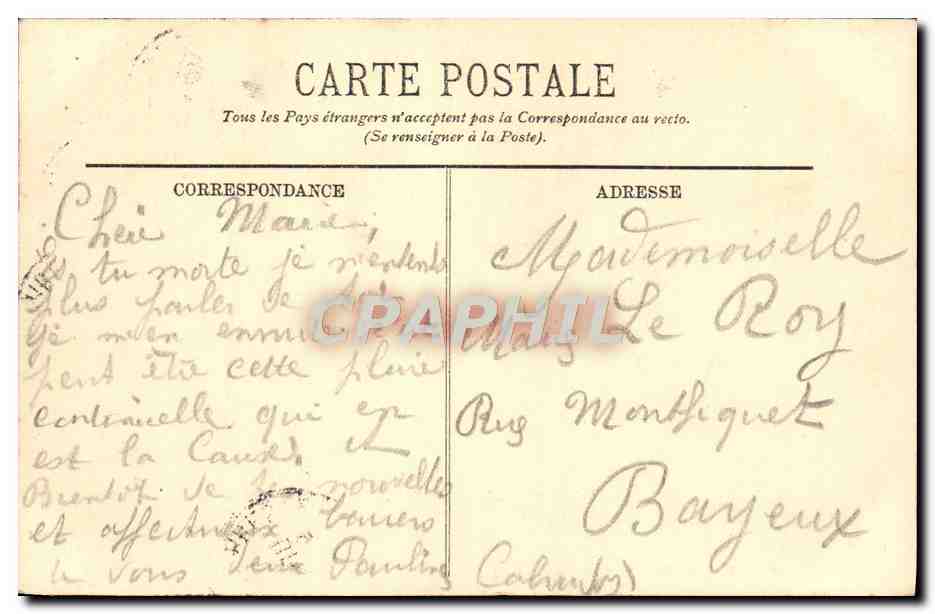 CARTE POSTALE
Tous les Pays étrangers n'acceptent pas la Correspondance au recto.
(Se renseigner à la Poste).
CORRESPONDANCE
Chère Marie,
es tu morte je n'entends
plus parler de toi
je m'en ennuie
peut être cette pluie
continuelle qui en
est la Cause. A
Bientot de tes nouvelles
et affectueux baisers
a vous deux Pauline
ADRESSE
Mademoiselle
Le Roy
Rue Montfiquet
Bayeux
Calvados
CPAPHIL